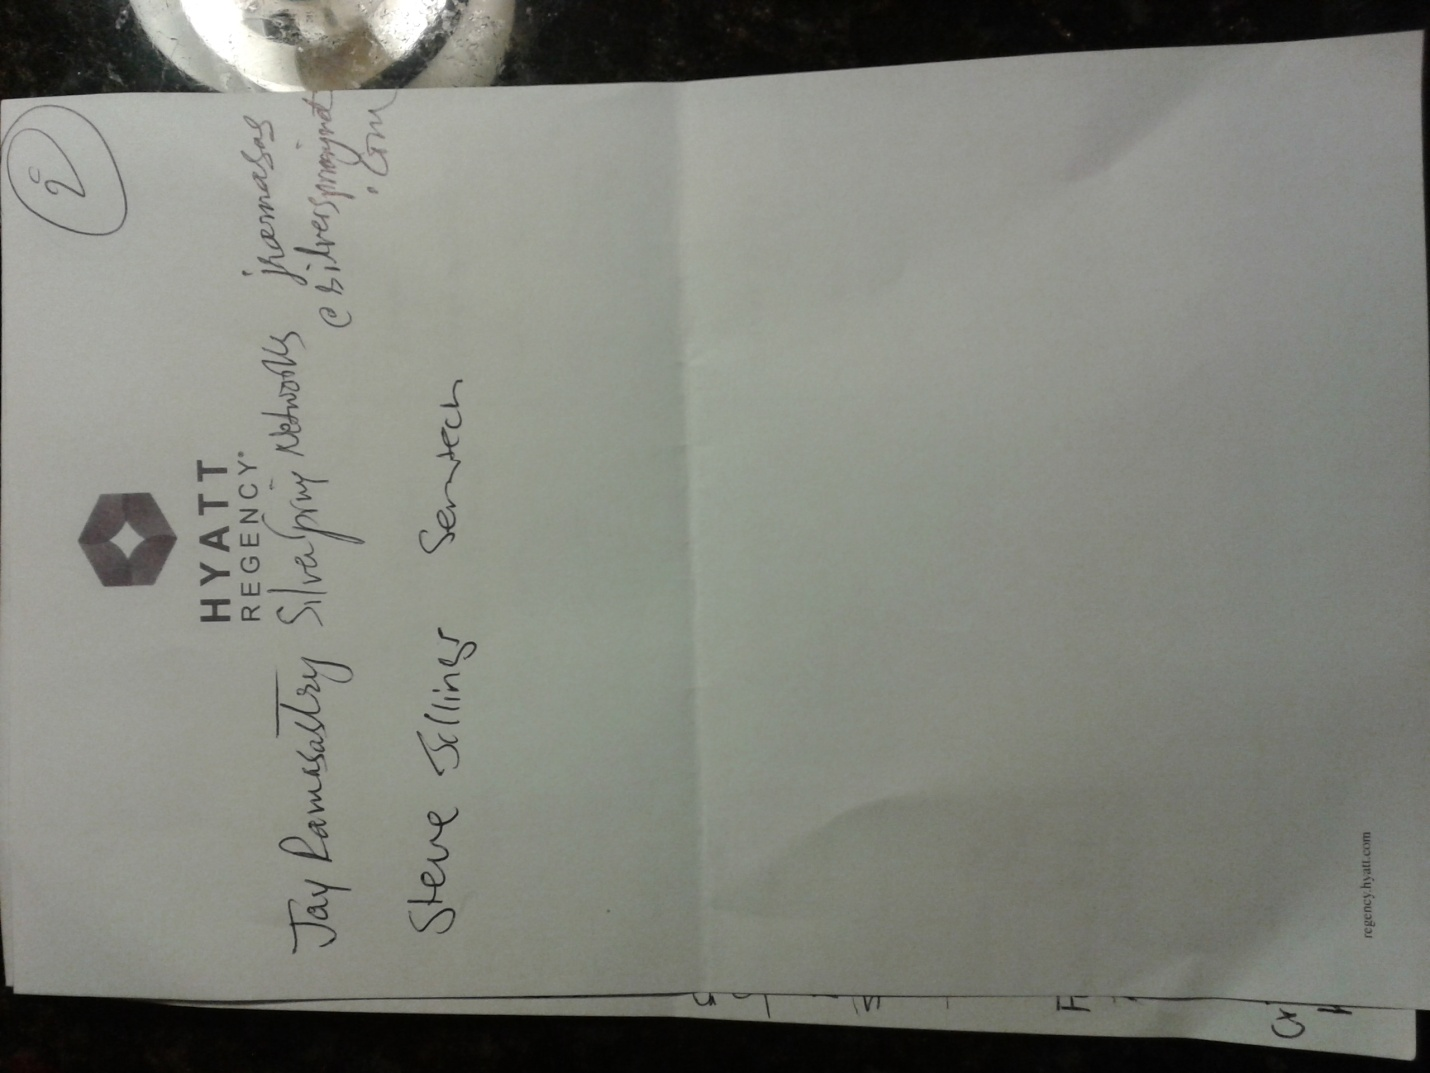 2
HYATT
REGENCY®
Jay Ramasastry Silverspring Networks jramasas
@silverspringnet
.com
Steve Jillings Semtech
regency.hyatt.com